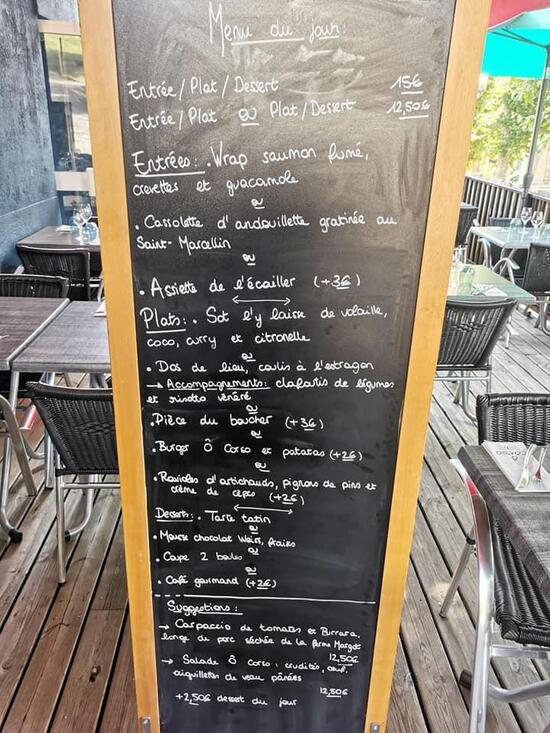 Menu du jour:
Entrée / Plat / Dessert 15€
Entrée / Plat ou Plat / Dessert 12,50€
Entrées: . Wrap saumon fumé,
crevettes et guacamole
ou
. Cassolette d'andouillette gratinée au
Saint-Marcellin
ou
. Assiette de l'écailler (+3€)
Plats: . Sot l'y laisse de volaille,
coco, curry et citronelle
ou
. Dos de lieu, coulis à l'estragon
→ Accompagnements: clafoutis de légumes
et risotto vénéré
ou
. Pièce du boucher (+3€)
ou
. Burger Ô Corso et patatas (+2€)
ou
. Ravioles d'artichauds, pignons de pins et
crème de cèpes (+2€)
Desserts: . Tarte tatin
ou
. Mousse chocolat Weiss, fraises
. Coupe 2 boules ou
ou
. Café gourmand (+2€)
Suggestions:
→ Carpaccio de tomates et Burrara,
longe de porc séchée de la ferme Margot
12,50€
→ Salade Ô Corso: crudités, oeuf,
aiguillettes de veau panées
12,50€
+2,50€ dessert du jour